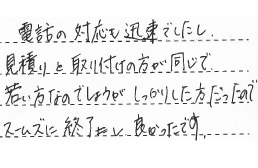 電話の対応も迅速でしたし、
見積りと取り付けの方が同じで
若い方なのでしょうがしっかりした方だったので
スムーズに終了し良かったです。